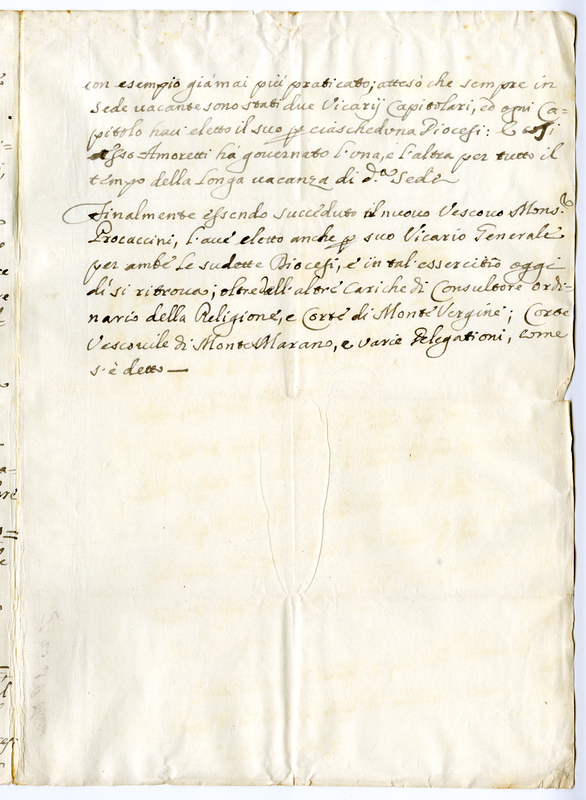 con esempio giámai piú praticato; attesó che sempre in
Sede vacante sono stati due Vicarij Capitolari, ed ogni Ca-
pitolo hav: eletto il suo p ciascheduna Diocesi: E così
esso Amoretti há governato l'una, é l'altra per tutto il
tempo della longa vacanza di d.ª Sede
Finalmente essendo succeduto il nuovo Vescovo Mons.r
Procaccini, l'avé eletto anche p suo Vicario Generale
per ambe le sudette Diocesi, é in tal essercitio oggi
di si ritrova; oltre dell'altre Cariche di Consultore ordi-
nario della Religione, e Corte di Monte Vergine; Corte
Vescovile di Monte Marano, e varie Delegationi, come
s'é detto —